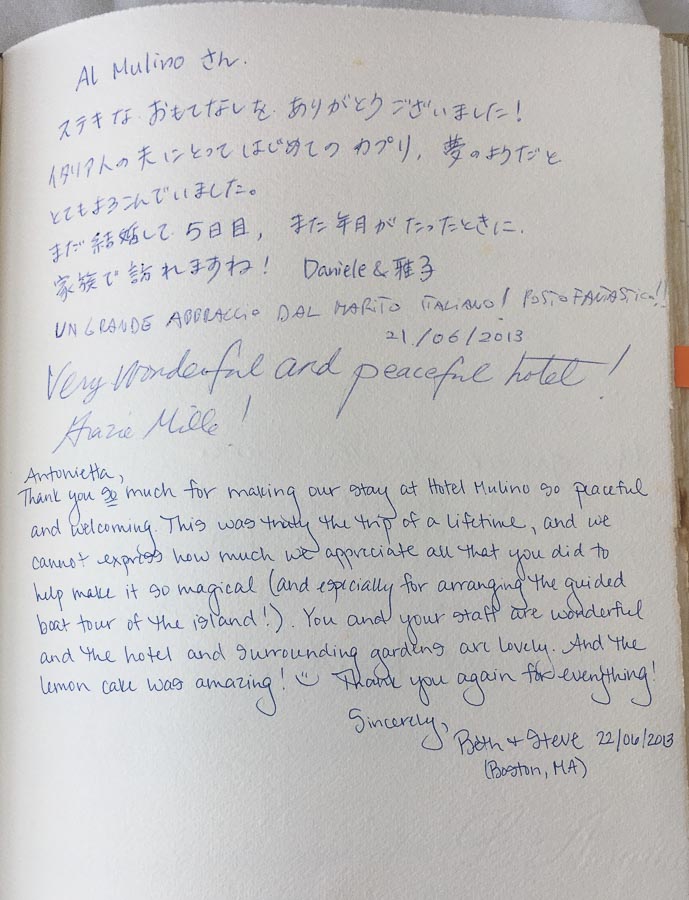 Al Mulino さん.
ステキな おもてなしを ありがとうございました!
イタリア人の夫にとって はじめての カプリ, 夢のようだと
とてもよろこんでいました。
まだ 結婚して 5日目, また 年月が たったときに.
家族で 訪れますね! Daniele & 雅子
UN GRANDE ABBRACCIO DAL MARITO ITALIANO! POSTO FANTASTICO!!
21/06/2013
Very wonderful and peaceful hotel!
Grazie Mille!
Antonietta,
Thank you so much for making our stay at Hotel Mulino so peaceful
and welcoming. This was truly the trip of a lifetime, and we
cannot express how much we appriciate all that you did to
help make it so magical (and especially for arranging the guided
boat tour of the island!). You and your staff are wonderful
and the hotel and surrounding gardens are lovely. And the
lemon cake was amazing! ☺ Thank you again for everything!
Sincerely,
Beth + Steve 22/06/2013
(Boston, MA)